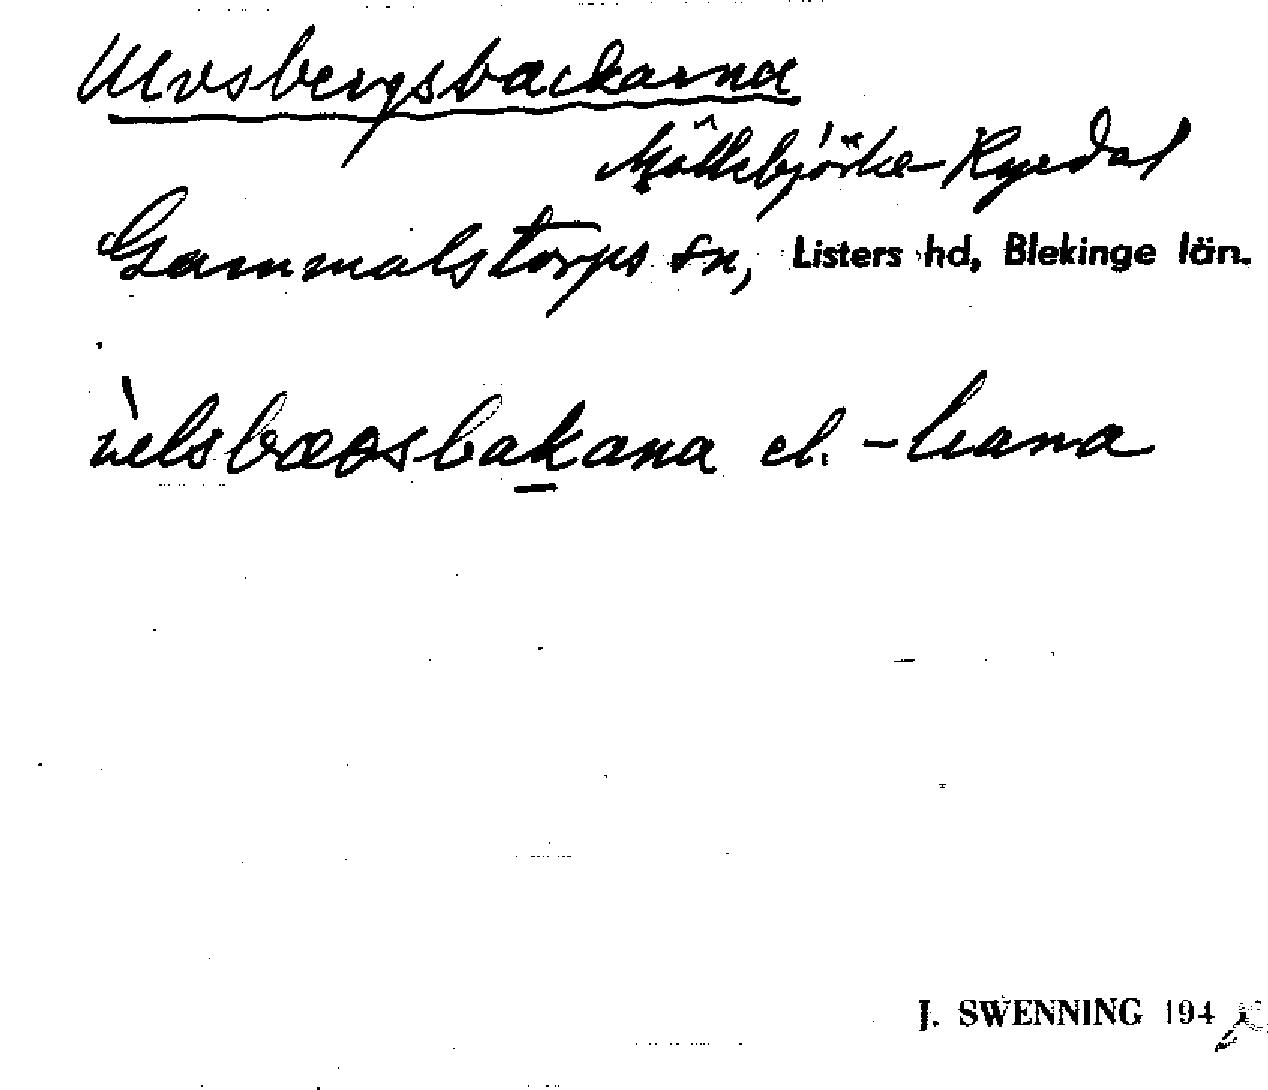 Ulvsbergsbackarna
Möllebjörke-Ryedal
Gammalstorps sn, Listers hd, Blekinge län.
uelsbæosbakana el. -bana
J. SWENNING 194